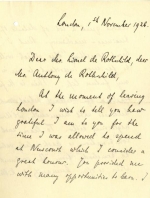 London, 1st November 1926.
Dear Mr. Lionel de Rothschild, dear
Mr. Anthony de Rothschild,
At the moment of leaving
London I wish to tell you how
grateful I am to you for the
time I was allowed to spend
at Newcourt which I consider a
great honour. You provided me
with many opportunities to learn. I